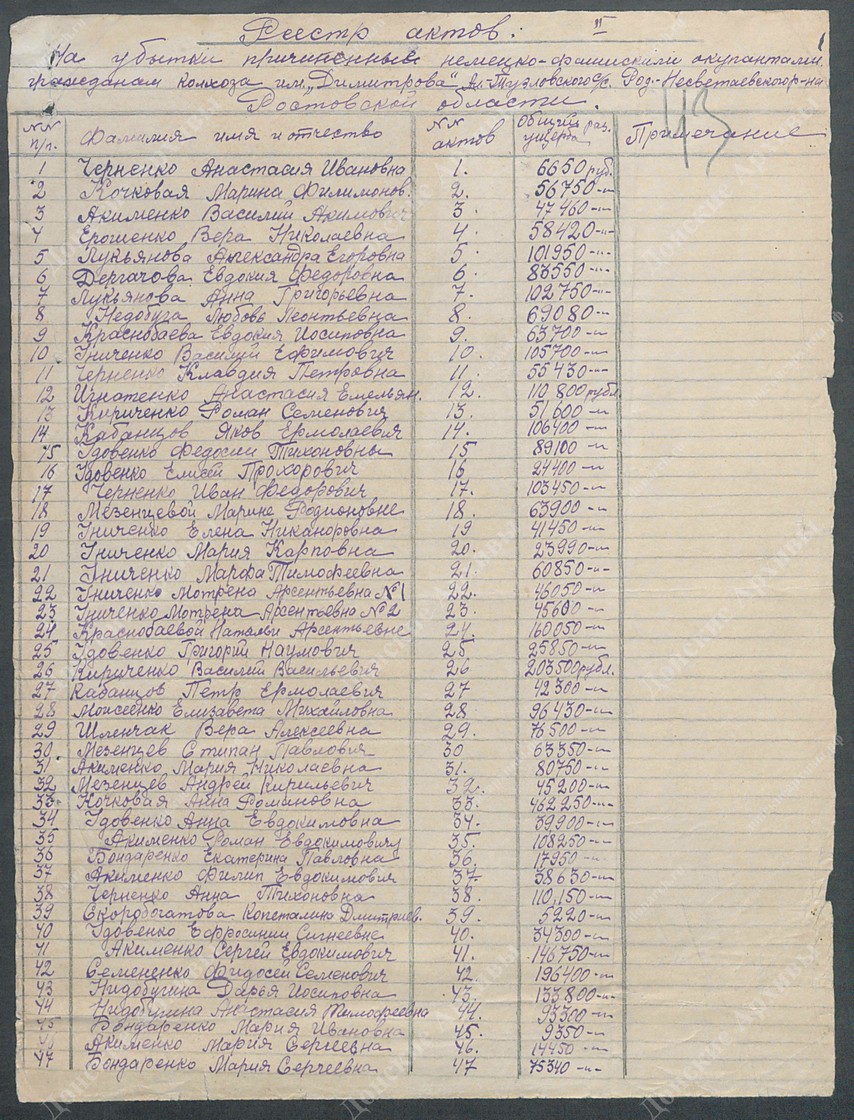 Реестр актов: II
На убытки причиненные немецко-фашискими окупантами
гражданам колхоза им. „Димитрова“ Тузловского с/с. Род-Несветаевского р-на
Ростовской области.
NN п/п. Фамилия имя и отчество NN актов Общий раз. ущерба Примечание
1 Черненко Анастасия Ивановна 1. 6650 руб.
2 Кочковая Марина Филимонов. 2. 56750-"-
3 Акименко Василий Акимович 3. 47460-"-
4 Ерошенко Вера Николаевна 4. 58420-"-
5 Лукьянова Александра Егоровна 5. 101950-"-
6 Дергачова Евдокия Федоровна 6. 83550-"-
7 Лукьянова Анна Григорьевна 7. 102750-"-
8 Недобуга Любовь Леонтьевна 8. 69080-"-
9 Краснобаева Евдокия Иосиповна 9. 63700-"-
10 Гниченко Василий Ефимович 10. 105700-"-
11 Черненко Клавдия Петровна 11. 55430-"-
12 Игнатенко Анастасия Емельян. 12. 110800 рубл.
13 Кириченко Роман Семенович 13. 51600-"-
14 Кабанцов Яков Ермолаевич 14. 106400-"-
15 Удовенко Федосии Тихоновны 15 89100-"-
16 Удовенко Елисей Прохорович 16 24400-"-
17 Черненко Иван Федорович 17. 103450-"-
18 Мезенцевой Марине Родионовне 18. 63900-"-
19 Гниченко Елена Никаноровна 19 41450-"-
20 Гниченко Мария Карповна 20. 23990-"-
21 Гниченко Марфа Тимофеевна 21. 60850-"-
22 Гниченко Мотрена Арсентьевна №1 22. 46050-"-
23 Гниченко Мотрена Арсентьевна №2 23. 45600-"-
24 Краснобаевой Натальи Арсентьевне 24. 160050-"-
25 Удовенко Григорий Наумович 25 25850-"-
26 Кириченко Василий Васильевич 26 203500 рубл.
27 Кабанцов Петр Ермолаевич 27 42300-"-
28 Моисеенко Елизавета Михайловна 28. 96430-"-
29 Шленчак Вера Алексеевна 29. 76500-"-
30. Мезенцев Стипан Павлович 30 63350-"-
31. Акименко Мария Николаевна 31. 80750-"-
32 Мезенцев Андрей Кирильевич 32. 45200-"-
33 Кочковая Анна Романовна 33. 462250-"-
34 Удовенко Анна Евдокимовна 34. 39900-"-
35 Акименко Роман Евдокимовичу 35. 108250-"-
36 Бондаренко Екатерина Павловна 36. 17950-"-
37 Акименко Филип Евдокимович 37 38630-"-
38 Черненко Анна Тихоновна 38. 110,150-"-
39 Скоробогатова Дмитриев. 39. 5220-"-
40 Удовенко Ефросинии 40. 34300-"-
41 Акименко Сергей Евдокимович 41. 146750-"-
42 Семененко Фидосей Семенович 42 196400-"-
43 Нидобугина Дарья Иосиповна 43. 133800-"-
44 Нидобугина Анастасия Тимофеевна 44. 93300-"-
45 Бондаренко Мария Ивановна 45. 9350-"-
Акименко Мария Сергеевна 46. 14450-"-
47 Бондаренко Мария Сергеевна 47 75340-"-